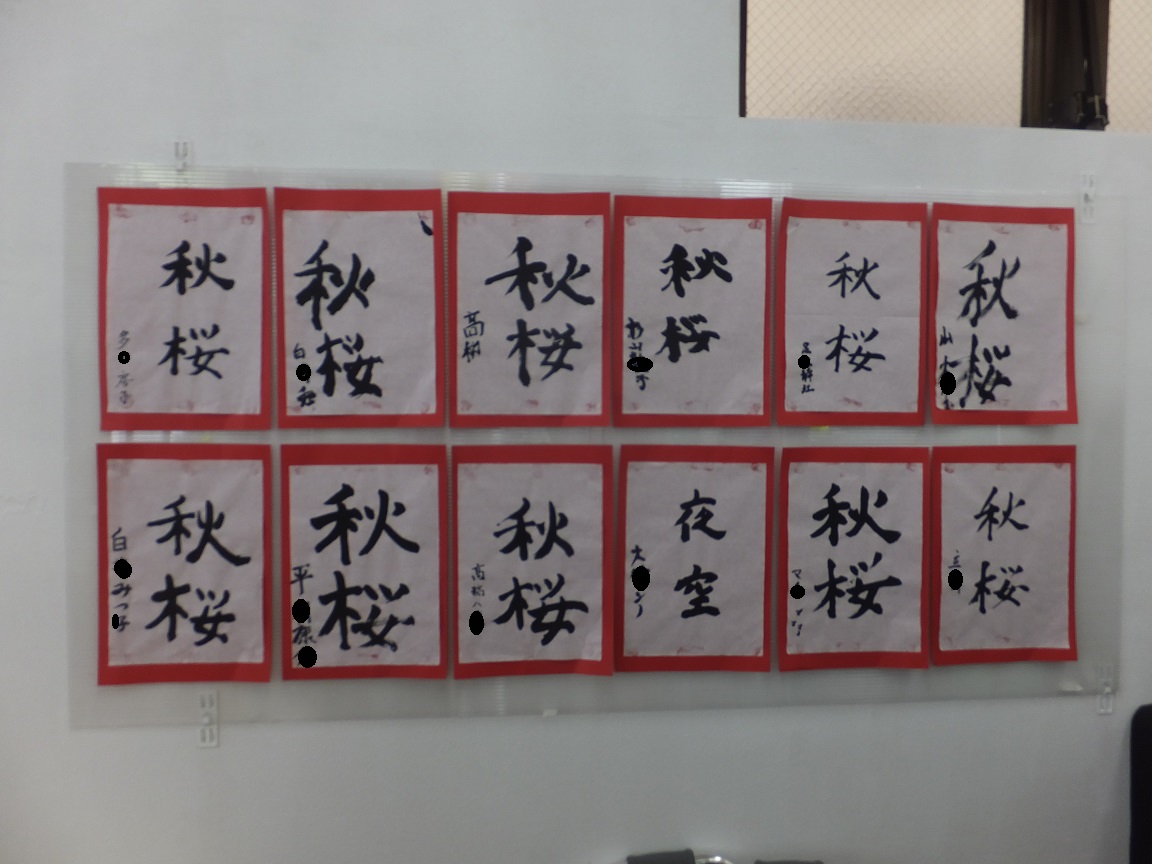 秋桜
秋桜
白
秋桜
高松
秋桜
杉山
秋桜
秋桜
山
秋桜
白
みつ子
秋桜
平
康
秋桜
高松
夜空
大
秋桜
マ
秋桜